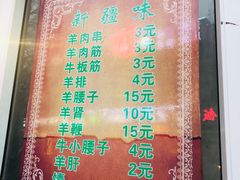 新疆味
羊肉串 3元
羊肉筋 3元
牛板筋 3元
羊排 4元
羊腰子 15元
羊肾 10元
羊鞭 15元
牛小腰子 4元
羊肝 2元